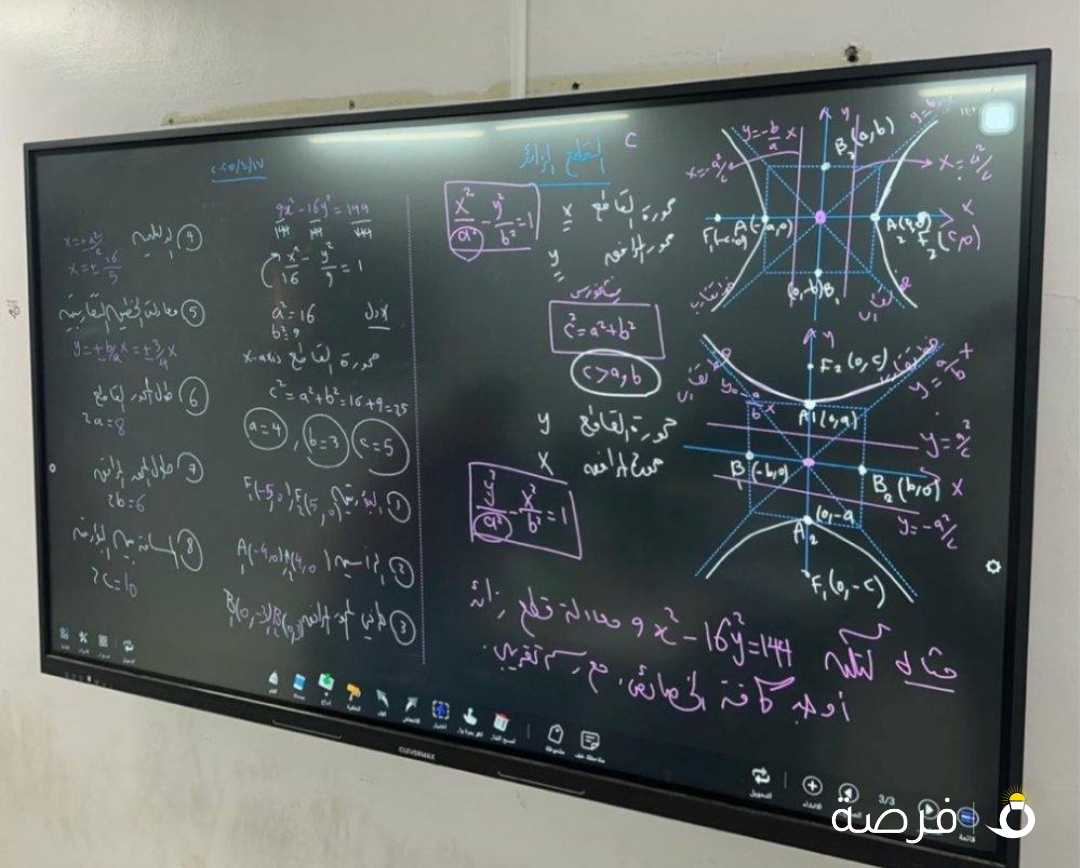 القطع الزائد
C
x²/a² - y²/b² = 1
محورة القاطع x
محور المرافق y
فيثاغورس
c² = a² + b²
c > a, b
محورة القاطع y
محورة المرافق x
x²/b² = 1
y = -b/a x
y
B₂(0,b)
x = -a²/c
x = a²/c
x
F₁(-c,0)
A₁(-a,0)
A₂(a,0)
F₂(c,0)
(0,-b)B₁
y
F₂(0,c)
y = -a/b x
y = a/b x
A₁(0,a)
y = a²/c
B₁(-b,0)
B₂(b,0)
x
(0,-a
A₂
y = -a²/c
F₁(0,-c)
مثال لتكن 9x² - 16y² = 144 معادلة قطع زائد
أوجد كافة الخصائص مع رسم تقريبي
9x² - 16y² = 144
144 144 144
x²/16 - y²/9 = 1
a² = 16
b² = 9
محورة القاطع x-axis
c² = a² + b² = 16 + 9 = 25
a = 4 , b = 3 , c = 5
① البؤرتين F₁(-5,0), F₂(5,0)
② الرأسين A₁(-4,0) A₂(4,0)
③ طرفي المحور المرافق B₁(0,-3) B₂(0,3)
④
x = ± a²/c
x = ± 16/5
⑤ معادلة الخطين التقاربيين
y = ± b/a x = ± 3/4 x
⑥ طول المحور القاطع
2a = 8
⑦ طول المحور المرافق
2b = 6
⑧ المسافة بين البؤرتين
2c = 10
CLEVERMAX
3/3
قائمة
فرصة